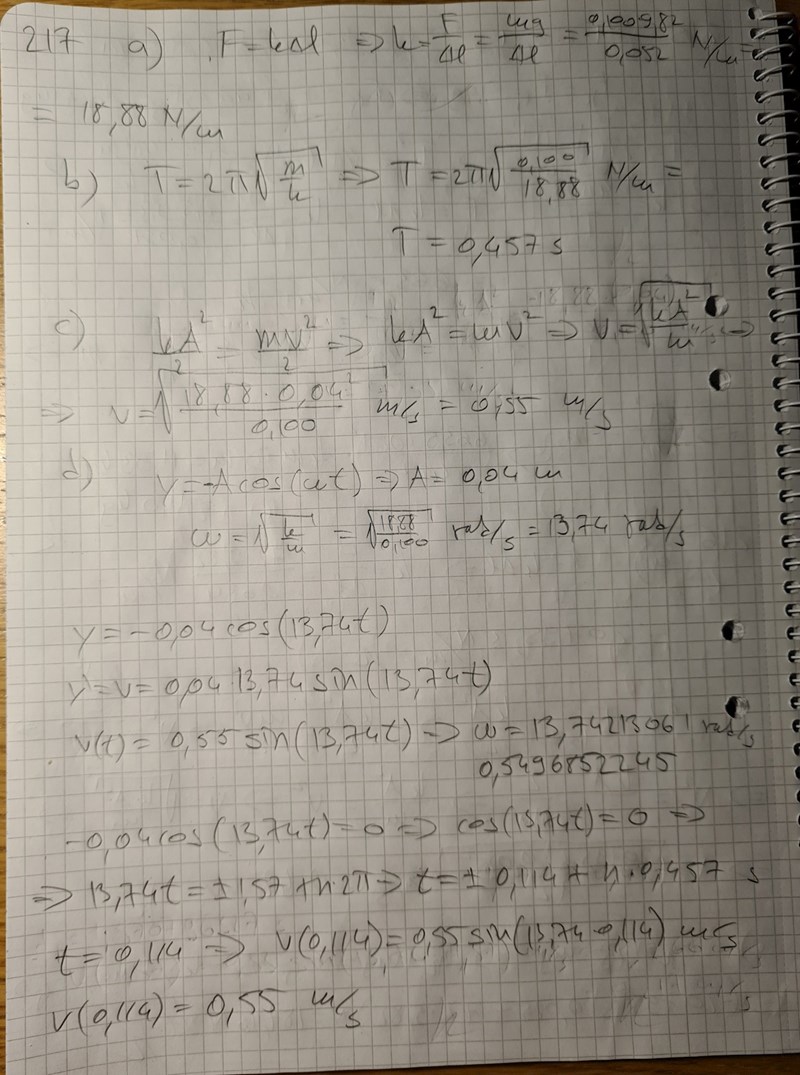 217 a) F = kΔl ⇒ k = F/Δl = mg/Δl = 0,100 9,82/0,052 N/m =
= 18,88 N/m
b) T = 2π√(m/k) ⇒ T = 2π√(0,100/18,88) N/m =
T = 0,457 s
c) kA²/2 = mv²/2 ⇒ kA² = mv² ⇒ v = √(kA²/m) ⇒
⇒ v = √(18,88 · 0,04²/0,100) m/s = 0,55 m/s
d) y = -A cos(ωt) ⇒ A = 0,04 m
ω = √(k/m) = √(18,88/0,100) rad/s = 13,74 rad/s
y = -0,04 cos(13,74t)
y' = v = 0,04 13,74 sin(13,74t)
v(t) = 0,55 sin(13,74t) ⇒ ω = 13,74213061 rad/s
0,5496852245
-0,04 cos(13,74t) = 0 ⇒ cos(13,74t) = 0 ⇒
⇒ 13,74t = ±1,57 + n·2π ⇒ t = ±0,114 + n·0,457 s
t = 0,114 ⇒ v(0,114) = 0,55 sin(13,74·0,114) m/s
v(0,114) = 0,55 m/s